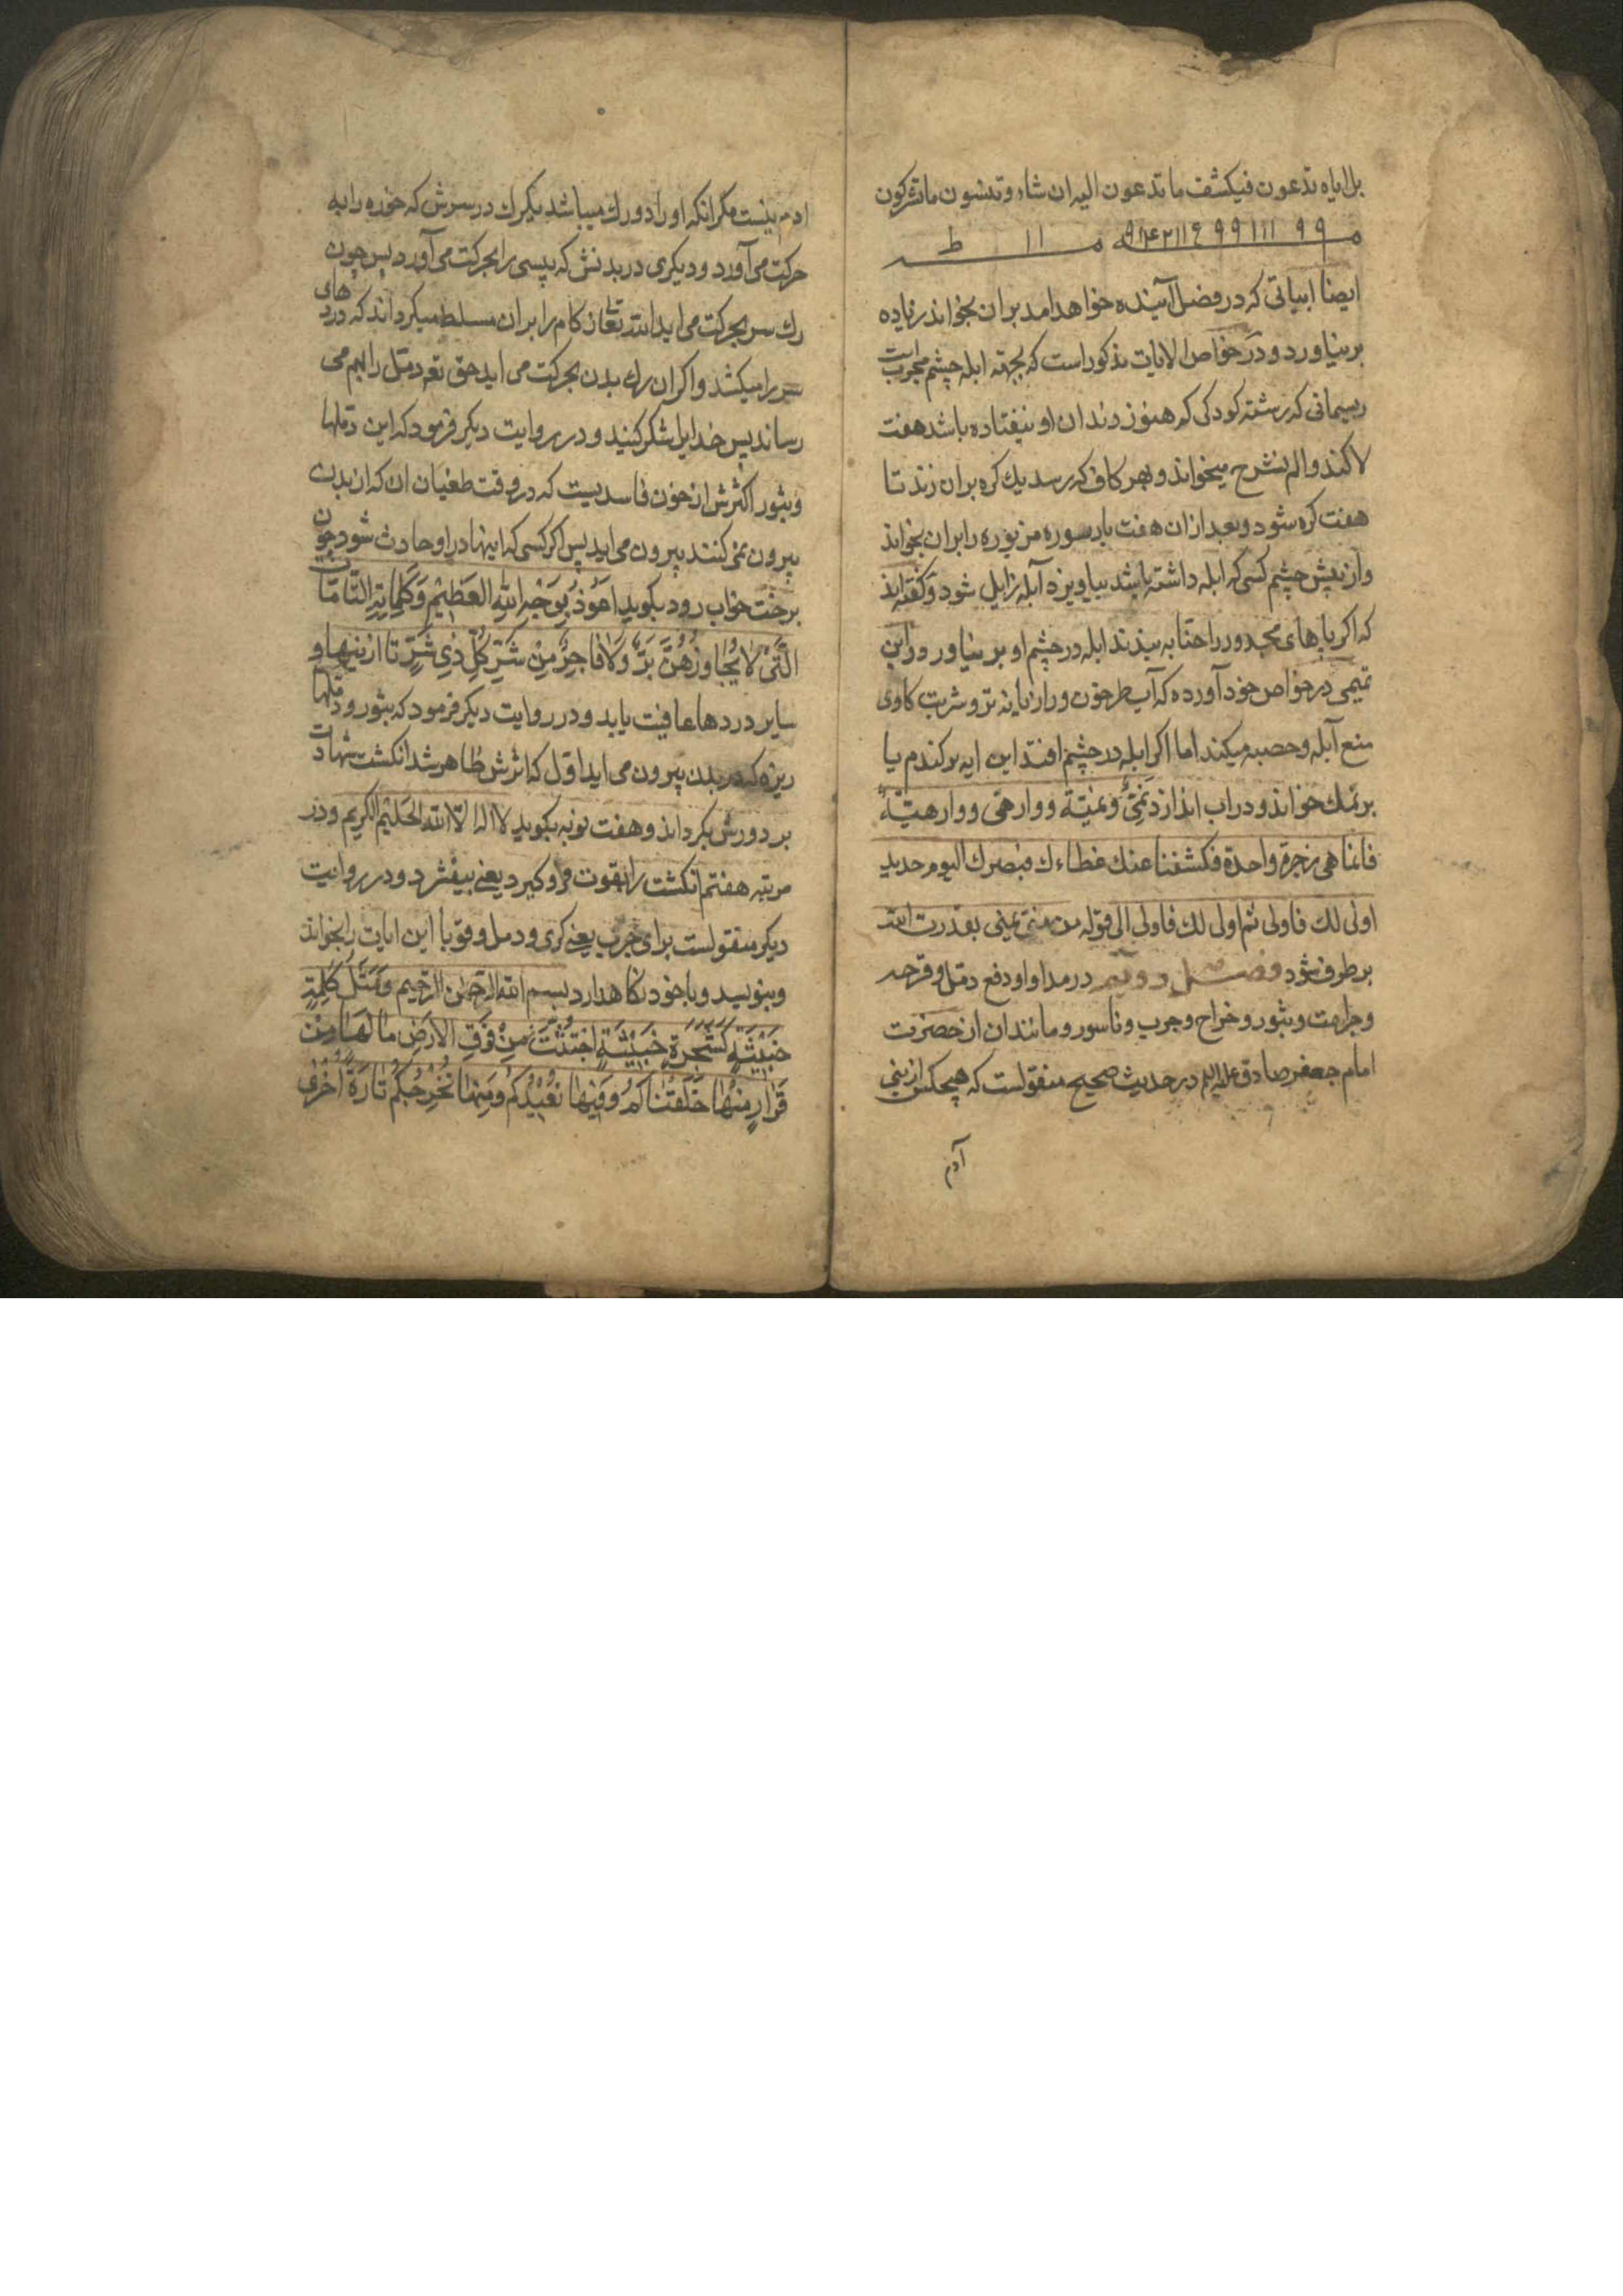 بل ایاه تدعون فیکشف ما تدعون الیه ان شاء وتنسون ما تشرکون
۹۹ ۱۱۱ ۹۹ ۹۱۴۲۱۱۶ ۱۱ ط
ایضا ابیاتی که در فصل آینده خواهد امد بران بخواند زیاده
بر نیاورد و در خواص الایات مذکور است که بجهة ابله چشم مجرب است
ریسمانی که رشته کودکی که هنوز دندان او نیفتاده باشد هفت
لا کند و الم نشرح میخواند و بهر کاف که رسد یك کره بران زند تا
هفت کره شود و بعد ازان هفت بار سوره مزبوره را بران بخواند
وان پیش چشم کسی که ابله داشته باشد بیاویزد آبله زایل شود و کفته‌اند
که اکر پاهای مجدور را حنا به بندند ابله در چشم او بر نیاورد و ابن
تمیمی در خواص خود آورده که آب طرخون و رازیانه تر و شربت کاوی
منع آبله و حصبه میکند اما اکر ابله در چشم افتد این ایه بر کندم یا
بر نمك خواند و در اب اندازد
فانما هی زجرة واحدة فکشفنا عنك غطاءك فبصرك الیوم حدید
اولی لك فاولی ثم اولی لك فاولی الی قوله من منی یمنی بقدرت الله
بر طرف شود فصل دویم در مداوا و دفع دمل و قرحه
و جراحت و بثور و خراج و جرب و ناسور و مانند ان از حضرت
امام جعفر صادق علیه السلم در حدیث صحیح منقولست که هیچکس از بنی
آدم
ادم نیست مکر انکه او را دو رك میباشد یکرك در سرش که خوره را به
حرکت می آورد و دیکری در بدنش که پیسی را بحرکت می آورد پس چون
رك سر بحرکت می اید الله تعالی زکام را بران مسلط میکرداند که دردهای
سر را میکشد و اکر ان رك بدن بحرکت می اید حق تعه دمل را بهم می
رساند پس خدایرا شکر کنید و در روایت دیکر فرمود که این دملها
و بثور اکثرش از خون فاسدیست که در وقت طغیان ان که از بدن
بیرون نمی کنند بیرون می اید پس اکر کسی که اینها در او حادث شود چون
برخت خواب رود بکوید اَعُوذُ بِوَجْهِ اللهِ العَظیْمِ وَکَلِمَاتِهِ التَّامَّاتِ
الَّتِیْ لَا یُجَاوِزُهُنَّ بَرٌّ وَلَا فَاجِرٌ مِنْ شَرِّ کُلِّ ذِی شَرٍّ تا از اینها و
سایر دردها عافیت یابد و در روایت دیکر فرمود که بثور و دملها
ریزه که در بدن بیرون می اید اول که اثرش ظاهر شد انکشت شهادت
بر دورش بکرداند و هفت نوبه بکوید لا اله الا الله الحلیم الکریم و در
مرتبه هفتم انکشت را بقوت فرو کیرد یعنی بیفشرد و در روایت
دیکر منقولست برای جرب یعنی کری و دمل و قوبا این ایات را بخواند
و بنویسد و با خود نکاهدارد بسم الله الرحمن الرحیم وَمَثَلُ کَلِمَةٍ
خَبِیْثَةٍ کَشَجَرَةٍ خَبِیْثَةٍ اجْتُثَّتْ مِنْ فَوْقِ الْاَرْضِ مَا لَهَا مِنْ
قَرَارٍ مِنْهَا خَلَقْنَاکُمْ وَفِیْهَا نُعِیْدُکُمْ وَمِنْهَا نُخْرِجُکُمْ تَارَةً اُخْرٰی